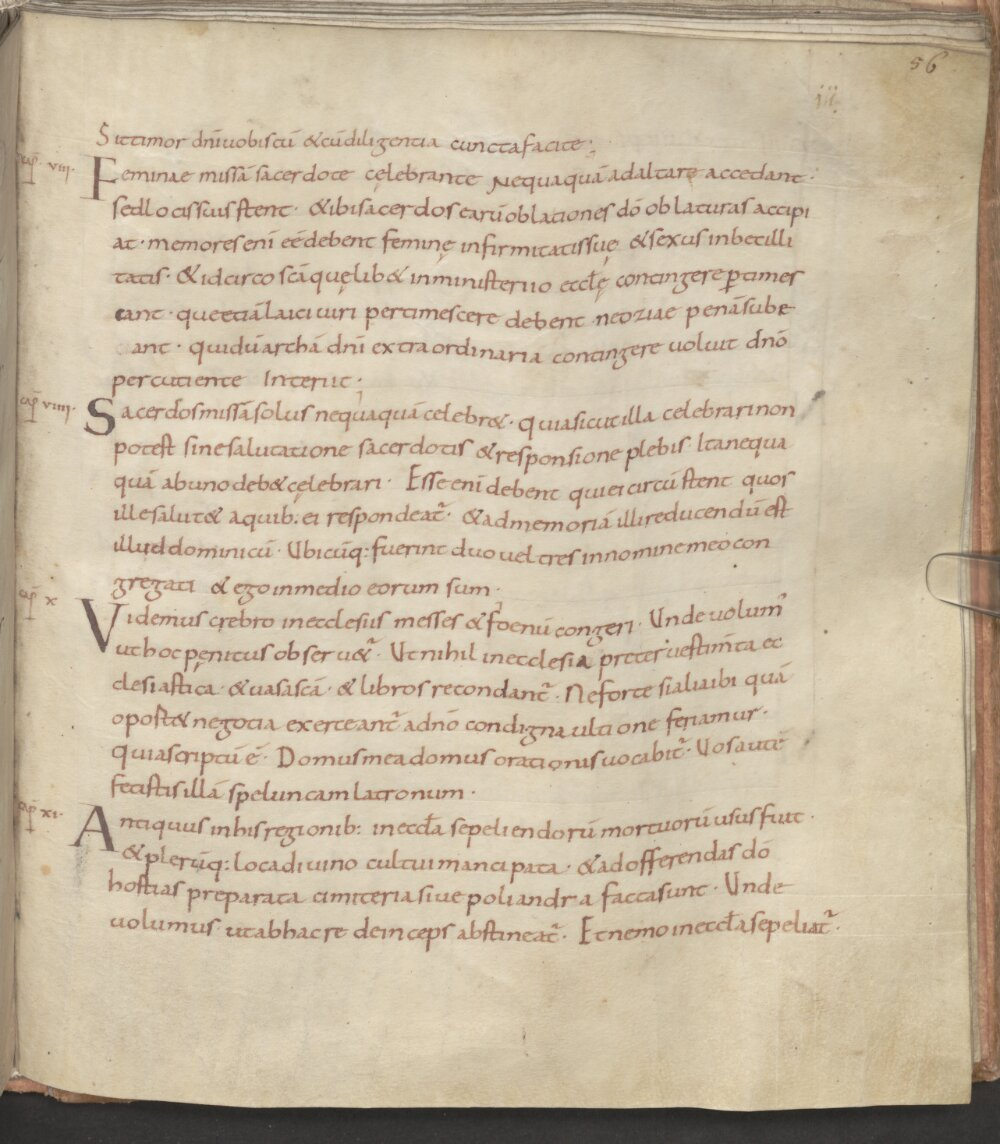 56
iii
Sit timor dñi uobiscũ & cũ diligentia cuncta facite;
cap̃. viii. Feminae missã sacerdote celebrante nequaquã ad altare accedant.
sed locis suis stent. & ibi sacerdos earũ oblationes dõ oblaturas accipi
at. memores eni eẽ debent feminę infirmitatis suę & sexus inbecilli
tatis. & idcirco scã quęlib& in ministerio eccłę contingere ꝑtimes
cant. que etiã laici uiri pertimescere debent ne oziae penã sube
ant. qui dũ archã dñi extraordinaria contingere uoluit dnõ
percutiente Interiit.
cap̃ viiii. Sacerdos missã solus nequaquã celebr&. quia sicut illa celebrari non
potest sine salutatione sacerdotis & responsione plebis. Ita nequa
quã ab uno deb& cęlebrari. Esse eni debent qui ei circũstent quos
ille salut& a quib; ei respondeat᷑. & ad memoriã illi reducendũ est
illud dominicũ. Ubicũq; fuerint duo uel tres in nomine meo con
gregati & ego in medio eorum sum.
cap̃ x Videmus crebro in ecclesiis messes & foenũ congeri. Unde uolum᾿
ut hoc pęnitus obseru&᷑. Ut nihil in ecclesia pręter uestim̃ta ec
clesiastica. & uasa scã. & libros recondant᷑. Ne forte si alia ibi quã
oport& negotia exerceant᷑ a dnõ condigna ultione feriamur.
quia scriptũ ẽ. Domus mea domus orationis uocabit᷑. Uos autẽ
fecistis illã speluncam latronum.
cap̃ xi. Antiquus in his regionib; in eccła sepeliendorũ mortuorũ usus fuit.
& plerũq; loca diuino cultui mancipata. & ad offerendas dõ
hostias preparata cimiteria siue poliandria facta sunt. Unde
uolumus ut ab hac re deinceps abstineat᷑. Et nemo in eccła sepeliat᷑.